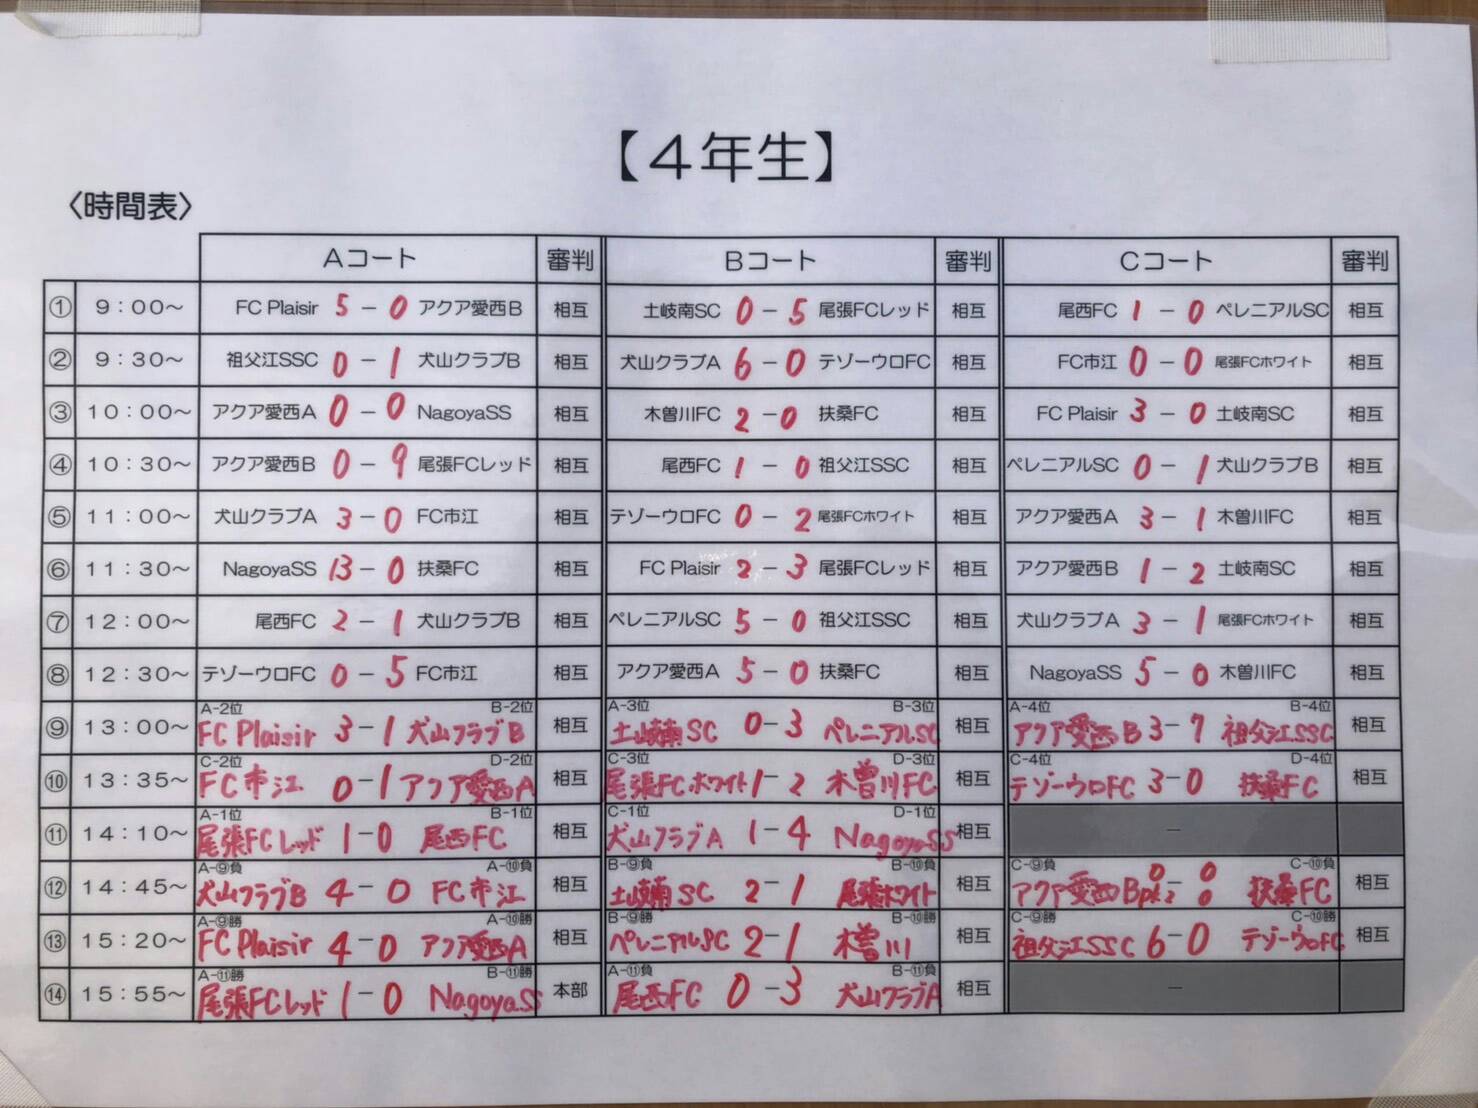 【4年生】
〈時間表〉
Aコート 審判 Bコート 審判 Cコート 審判
① 9:00～ FC Plaisir 5 - 0 アクア愛西B 相互 土岐南SC 0 - 5 尾張FCレッド 相互 尾西FC 1 - 0 ペレニアルSC 相互
② 9:30～ 祖父江SSC 0 - 1 犬山クラブB 相互 犬山クラブA 6 - 0 テゾーウロFC 相互 FC市江 0 - 0 尾張FCホワイト 相互
③ 10:00～ アクア愛西A 0 - 0 NagoyaSS 相互 木曽川FC 2 - 0 扶桑FC 相互 FC Plaisir 3 - 0 土岐南SC 相互
④ 10:30～ アクア愛西B 0 - 9 尾張FCレッド 相互 尾西FC 1 - 0 祖父江SSC 相互 ペレニアルSC 0 - 1 犬山クラブB 相互
⑤ 11:00～ 犬山クラブA 3 - 0 FC市江 相互 テゾーウロFC 0 - 2 尾張FCホワイト 相互 アクア愛西A 3 - 1 木曽川FC 相互
⑥ 11:30～ NagoyaSS 13 - 0 扶桑FC 相互 FC Plaisir 2 - 3 尾張FCレッド 相互 アクア愛西B 1 - 2 土岐南SC 相互
⑦ 12:00～ 尾西FC 2 - 1 犬山クラブB 相互 ペレニアルSC 5 - 0 祖父江SSC 相互 犬山クラブA 3 - 1 尾張FCホワイト 相互
⑧ 12:30～ テゾーウロFC 0 - 5 FC市江 相互 アクア愛西A 5 - 0 扶桑FC 相互 NagoyaSS 5 - 0 木曽川FC 相互
A-2位 B-2位 A-3位 B-3位 A-4位 B-4位
⑨ 13:00～ FC Plaisir 3 - 1 犬山クラブB 相互 土岐南SC 0 - 3 ペレニアルSC 相互 アクア愛西B 3 - 7 祖父江SSC 相互
C-2位 D-2位 C-3位 D-3位 C-4位 D-4位
⑩ 13:35～ FC市江 0 - 1 アクア愛西A 相互 尾張FCホワイト 1 - 2 木曽川FC 相互 テゾーウロFC 3 - 0 扶桑FC 相互
A-1位 B-1位 C-1位 D-1位
⑪ 14:10～ 尾張FCレッド 1 - 0 尾西FC 相互 犬山クラブA 1 - 4 NagoyaSS 相互 -
A-⑨負 A-⑩負 B-⑨負 B-⑩負 C-⑨負 C-⑩負
⑫ 14:45～ 犬山クラブB 4 - 0 FC市江 相互 土岐南SC 2 - 1 尾張ホワイト 相互 アクア愛西B 0 - 0 pk 2 0 扶桑FC 相互
A-⑨勝 A-⑩勝 B-⑨勝 B-⑩勝 C-⑨勝 C-⑩勝
⑬ 15:20～ FC Plaisir 4 - 0 アクア愛西A 相互 ペレニアルSC 2 - 1 木曽川 相互 祖父江SSC 6 - 0 テゾーウロFC 相互
A-⑪勝 B-⑪勝 A-⑪負 B-⑪負
⑭ 15:55～ 尾張FCレッド 1 - 0 NagoyaSS 本部 尾西FC 0 - 3 犬山クラブA 相互 -